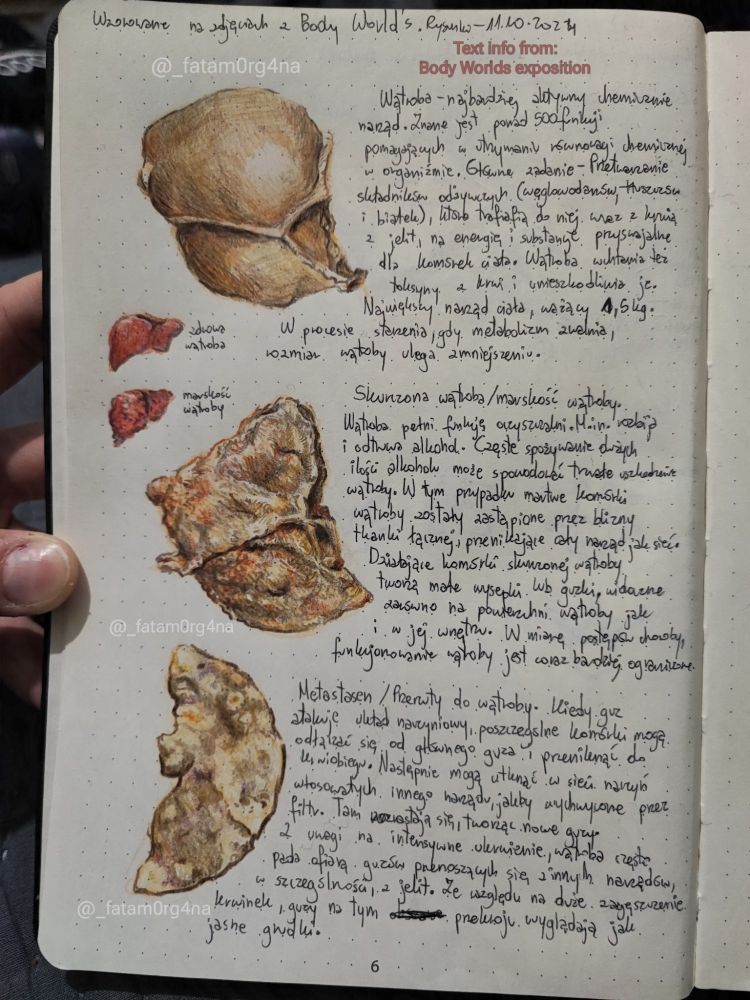 Wzorowane na zdjęciach z Body World's. Rysunki - 11.10.2024
Text info from:
Body Worlds exposition
@_fatam0rg4na
Wątroba - najbardziej aktywny chemicznie
narząd. Znane jest ponad 500 funkcji
pomagających w utrzymaniu równowagi chemicznej
w organizmie. Główne zadanie - Przetwarzanie
składników odżywczych (węglowodanów, tłuszczów
i białek), które trafiają do niej wraz z krwią
z jelit, na energię i substancje przyswajalne
dla komórek ciała. Wątroba wchłania też
toksyny z krwi i unieszkodliwia je.
Największy narząd ciała, ważący 1,5 kg.
W procesie starzenia, gdy metabolizm zwalnia,
rozmiar wątroby ulega zmniejszeniu.
zdrowa
wątroba
marskość
wątroby
Skurczona wątroba/marskość wątroby.
Wątroba pełni funkcję oczyszczalni. M.in. rozbija
i odtruwa alkohol. Częste spożywanie dużych
ilości alkoholu może spowodować trwałe uszkodzenie
wątroby. W tym przypadku martwe komórki
wątroby zostały zastąpione przez blizny
tkanki łącznej, przenikające cały narząd jak sieć.
Działające komórki skurczonej wątroby
tworzą małe wysepki lub guzki, widoczne
zarówno na powierzchni wątroby jak
i w jej wnętrzu. W miarę postępów choroby,
funkcjonowanie wątroby jest coraz bardziej ograniczone.
@_fatam0rg4na
Metastasen / Przerzuty do wątroby. Kiedy guz
atakuje układ naczyniowy, poszczególne komórki mogą
odłączać się od głównego guza i przeniknąć do
krwiobiegu. Następnie mogą utknąć w sieci naczyń
włosowatych innego narządu, jakby wychwycone przez
filtr. Tam rozrastają się, tworząc nowe guzy.
Z uwagi na intensywne ukrwienie, wątroba często
pada ofiarą guzów przenoszących się z innych narządów,
w szczególności, z jelit. Ze względu na duże zagęszczenie
krwinek, guzy na tym przekroju wyglądają jak
jasne grudki.
@_fatam0rg4na
6